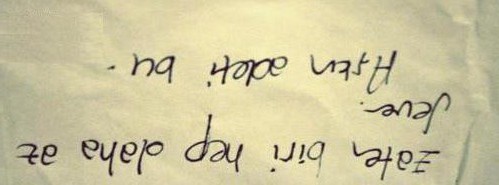 zaten biri hep daha az
sever.
Aşkın adeti bu.